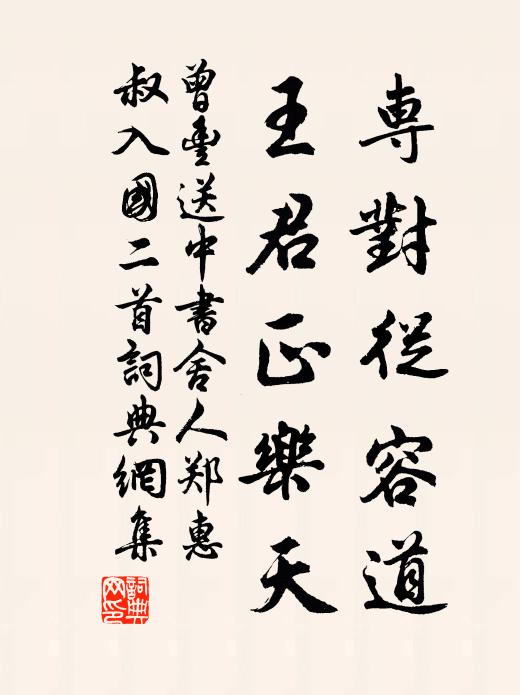 專對從容道
王君正樂天
曾豐送中書舍人郑惠
叔入國二首詞典網集
詞典
网印